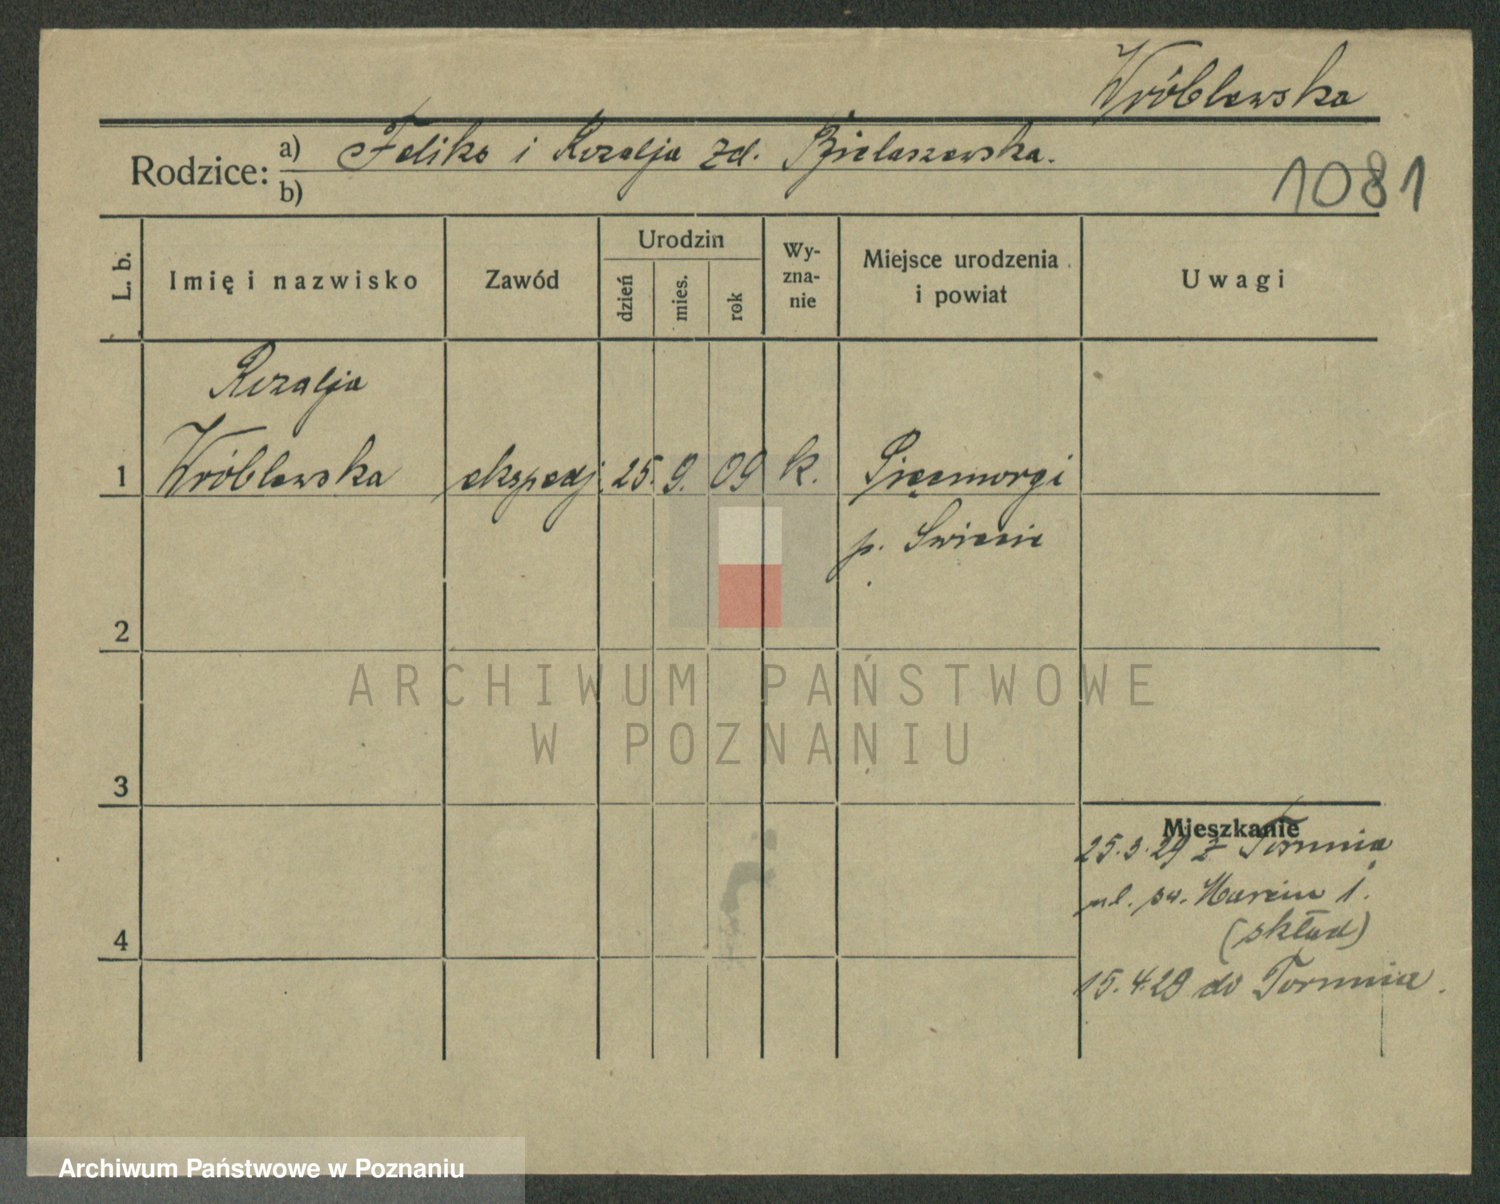 Wróblewska
Rodzice: a) Feliks i Rozalja zd. Bielaszewska.
b)
1081
L. b.
Imię i nazwisko
Zawód
Urodzin
dzień
mies.
rok
Wy-
zna-
nie
Miejsce urodzenia
i powiat
Uwagi
Rozalja
1 Wróblewska ekspedj. 25. 9. 09 k.
p. Swiecie
2
ARCHIWUM PAŃSTWOWE
W POZNANIU
3
Mieszkanie
25.3.29 z Torunia
ul. sw. Marcin 1.
(skład)
4
15.4.29 do Torunia.
Archiwum Państwowe w Poznaniu